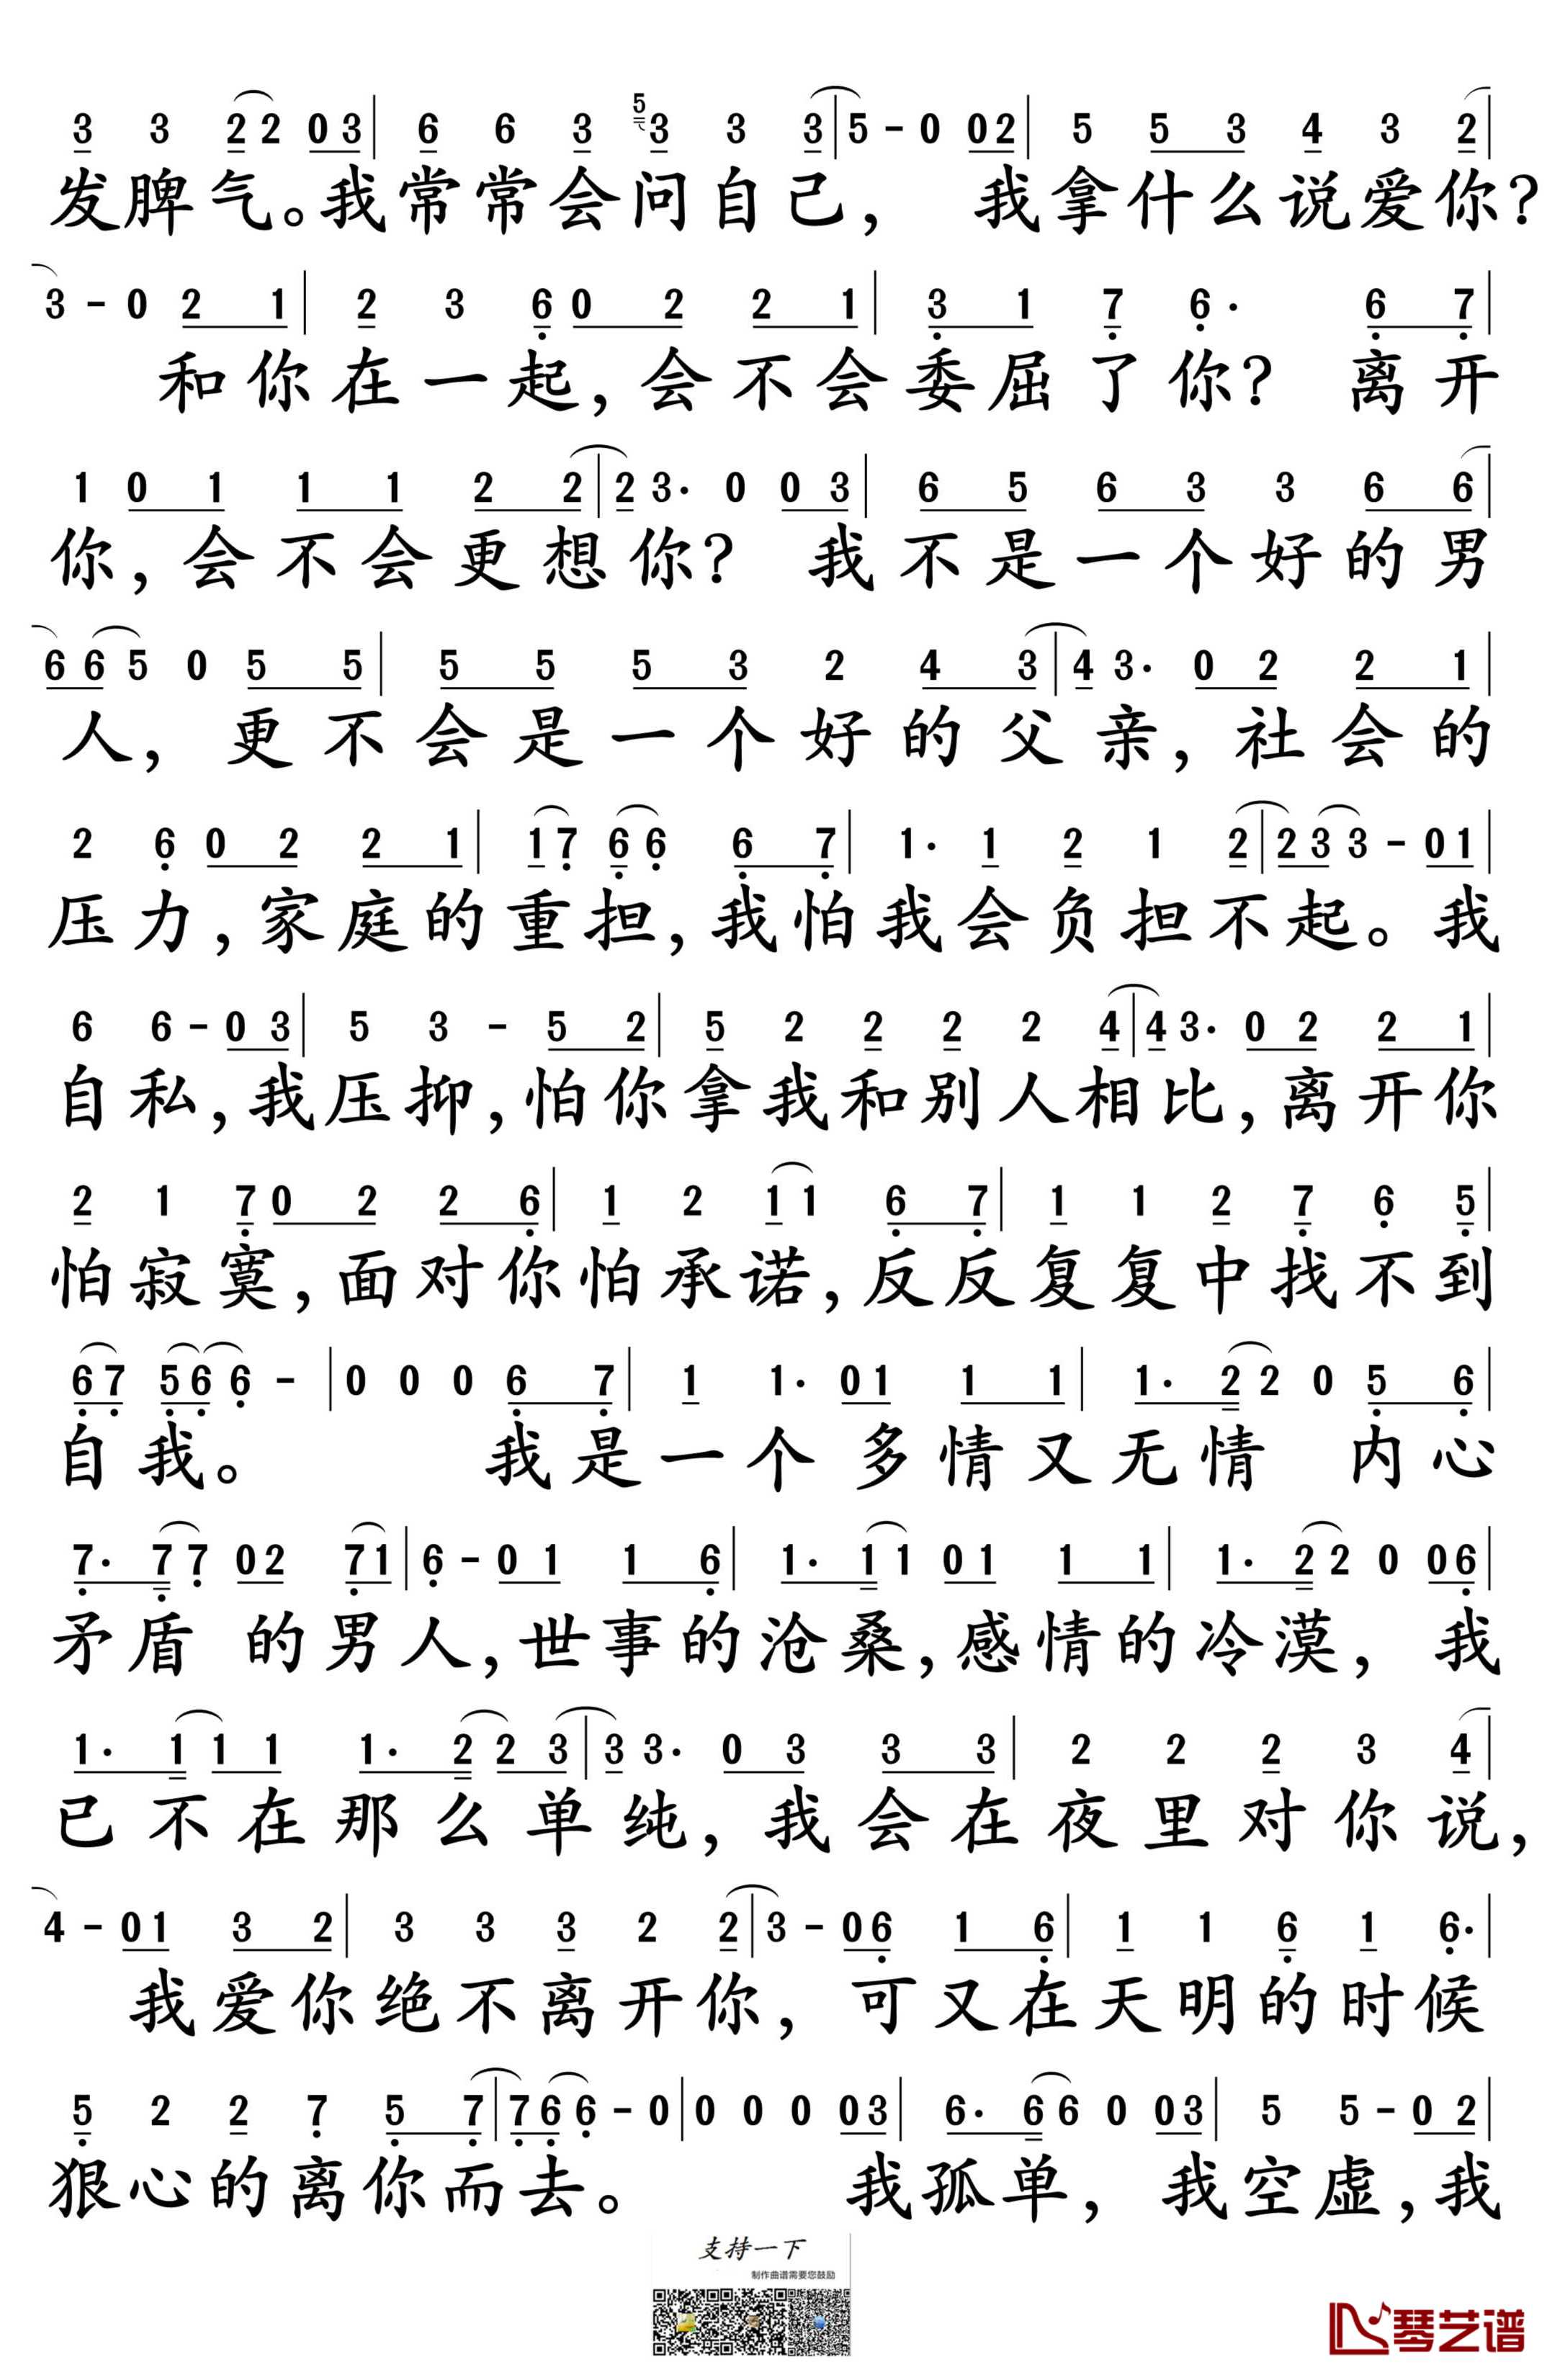 3 3 2 2 0 3 | 6 6 3 5 3 3 3 | 5 - 0 0 2 | 5 5 3 4 3 2 |
发脾气。我常常会问自己， 我拿什么说爱你？
3 - 0 2 1 | 2 3 6 0 2 2 1 | 3 1 7 6 · 6 7 |
和你在一起，会不会委屈了你？ 离开
1 0 1 1 1 2 2 | 2 3 · 0 0 3 | 6 5 6 3 3 6 6 |
你，会不会更想你？ 我不是一个好的男
6 6 5 0 5 5 | 5 5 5 3 2 4 3 | 4 3 · 0 2 2 1 |
人，更不会是一个好的父亲，社会的
2 6 0 2 2 1 | 1 7 6 6 6 7 | 1 · 1 2 1 2 | 2 3 3 - 0 1 |
压力，家庭的重担，我怕我会负担不起。我
6 6 - 0 3 | 5 3 - 5 2 | 5 2 2 2 2 4 | 4 3 · 0 2 2 1 |
自私，我压抑，怕你拿我和别人相比，离开你
2 1 7 0 2 2 6 | 1 2 1 1 6 7 | 1 1 2 7 6 5 |
怕寂寞，面对你怕承诺，反反复复中找不到
6 7 5 6 6 - | 0 0 0 6 7 | 1 1 · 0 1 1 1 | 1 · 2 2 0 5 6 |
自我。 我是一个多情又无情 内心
7 · 7 7 0 2 7 1 | 6 - 0 1 1 6 | 1 · 1 1 0 1 1 1 | 1 · 2 2 0 0 6 |
矛盾 的男人，世事的沧桑，感情的冷漠，我
1 · 1 1 1 1 · 2 2 3 | 3 3 · 0 3 3 3 | 2 2 2 3 4 |
已不在那么单纯，我会在夜里对你说，
4 - 0 1 3 2 | 3 3 3 2 2 | 3 - 0 6 1 6 | 1 1 6 1 6 · |
我爱你绝不离开你，可又在天明的时候
5 2 2 7 5 7 | 7 6 6 - 0 | 0 0 0 0 3 | 6 · 6 6 0 0 3 | 5 5 - 0 2 |
狠心的离你而去。 我孤单，我空虚，我
支持一下
制作曲谱需要您鼓励
琴艺谱